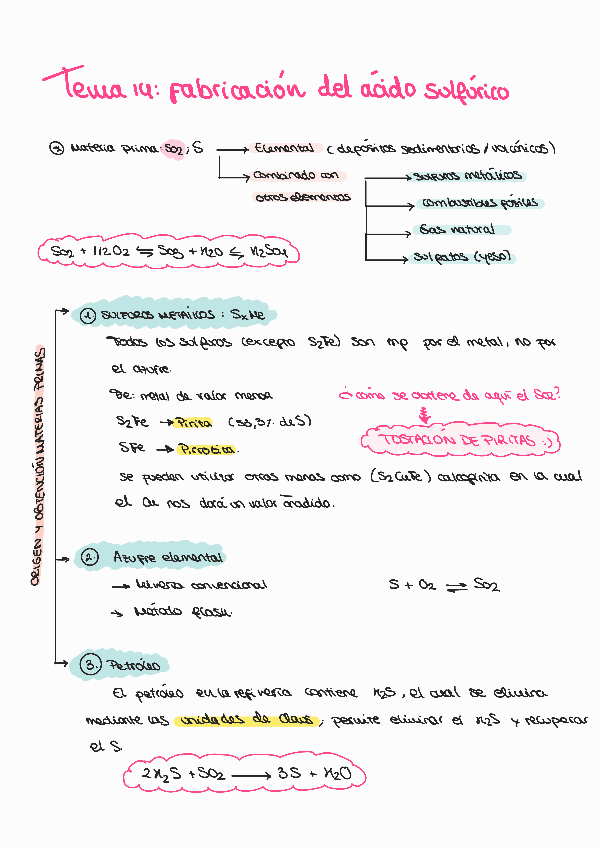 Tema 14: Fabricación del ácido sulfúrico
Materia prima: SO2; S → Elemental (depósitos sedimentarios/volcánicos)
→ Combinado con otros elementos
→ Sulfuros metálicos
→ combustibles fósiles
→ Gas natural
→ Sulfatos (yeso)
SO2 + 1/2 O2 ⇋ SO3 + H2O ⇋ H2SO4
ORIGEN Y OBTENCIÓN MATERIAS PRIMAS
1. SULFUROS METÁLICOS: SxMe
Todos los sulfuros (excepto S2Fe) son mp por el metal, no por
el azufre.
Fe: metal de valor menor
¿cómo se obtiene de aquí el SO2?
S2Fe → Pirita (53,3% de S)
TOSTACIÓN DE PIRITAS :)
SFe → Pirrotita.
Se pueden utilizar otras menas como (S2CuFe) calcopirita en la cual
el Cu nos dará un valor añadido.
2. Azufre elemental
→ Minería convencional
S + O2 ⇌ SO2
→ Método frash.
3. Petróleo
El petróleo en la refinería contiene H2S, el cual se elimina
mediante las unidades de Claus, permite eliminar el H2S y recuperar
el S.
2H2S + SO2 → 3S + H2O